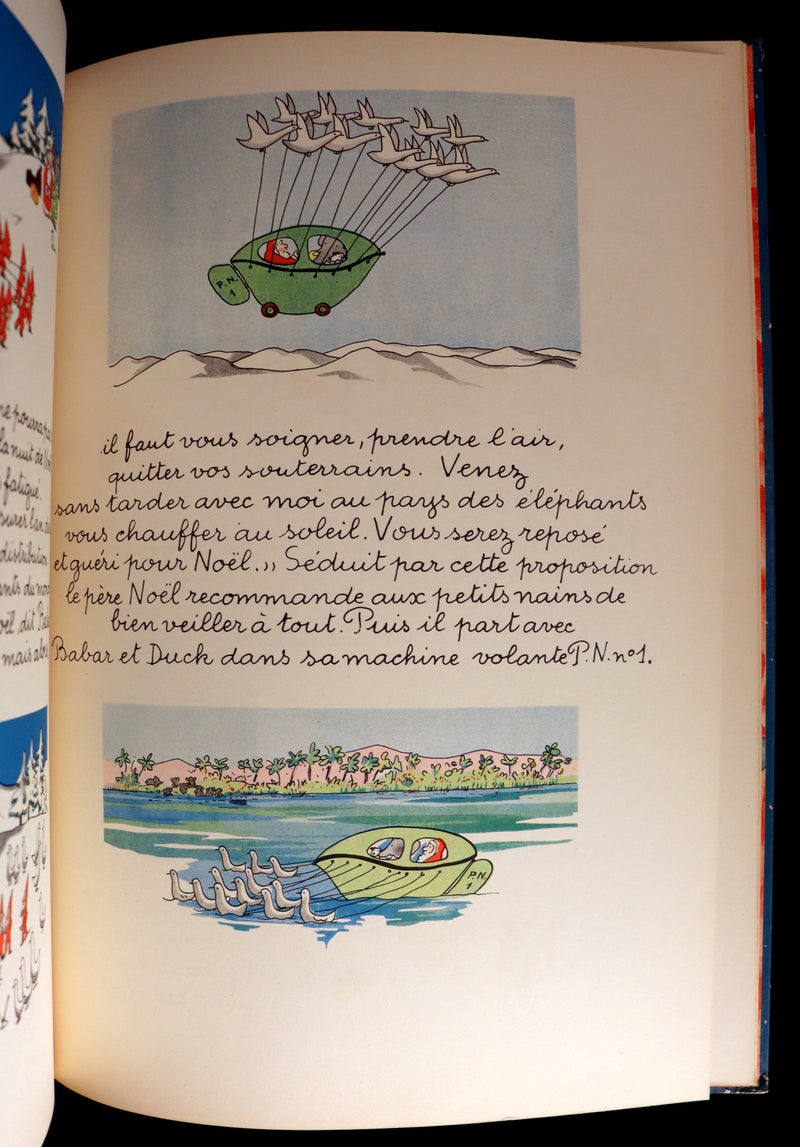 la nuit de
fatigué.
distribution
mais alors
P.N.
1
il faut vous soigner, prendre l'air,
quitter vos souterrains. Venez
sans tarder avec moi au pays des éléphants
vous chauffer au soleil. Vous serez reposé
et guéri pour Noël.,, Séduit par cette proposition
le père Noël recommande aux petits nains de
bien veiller à tout. Puis il part avec
Babar et Duck dans sa machine volante P.N. n°1.
P.N.
1